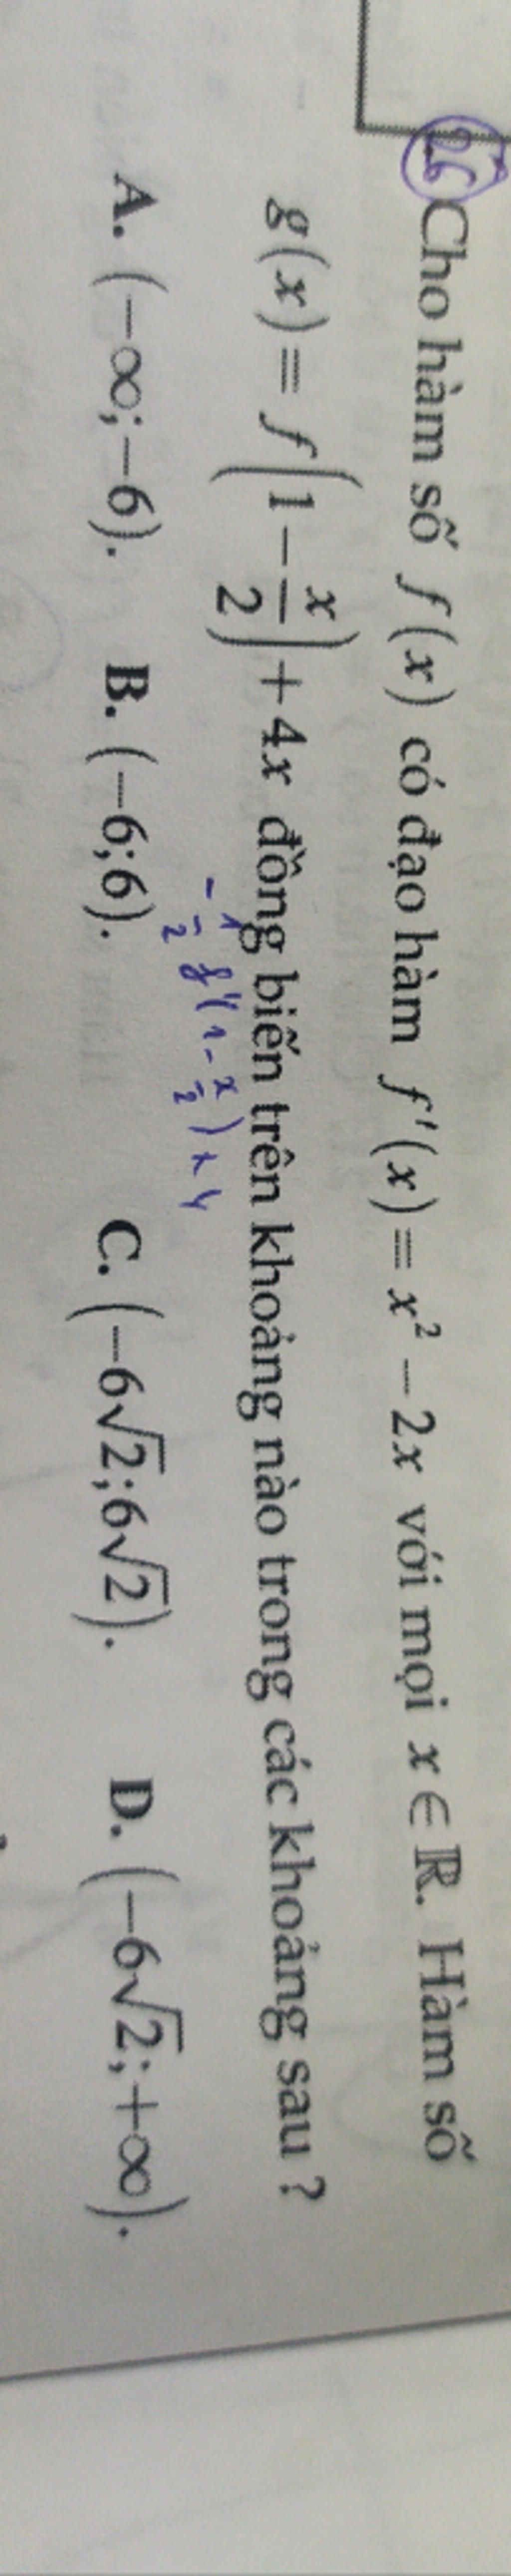 25 Cho hàm số f(x) có đạo hàm f'(x) = x² − 2x với mọi x ∈ ℝ. Hàm số
g(x) = f(1 − x/2) + 4x đồng biến trên khoảng nào trong các khoảng sau ?
− 1/2 f'(1 − x/2) + 4
A. (−∞; −6). B. (−6;6). C. (−6√2; 6√2). D. (−6√2; +∞).